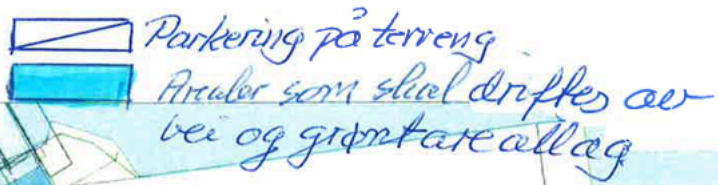 Parkering på terreng
Arealer som skal driftes av
vei og grøntareallag